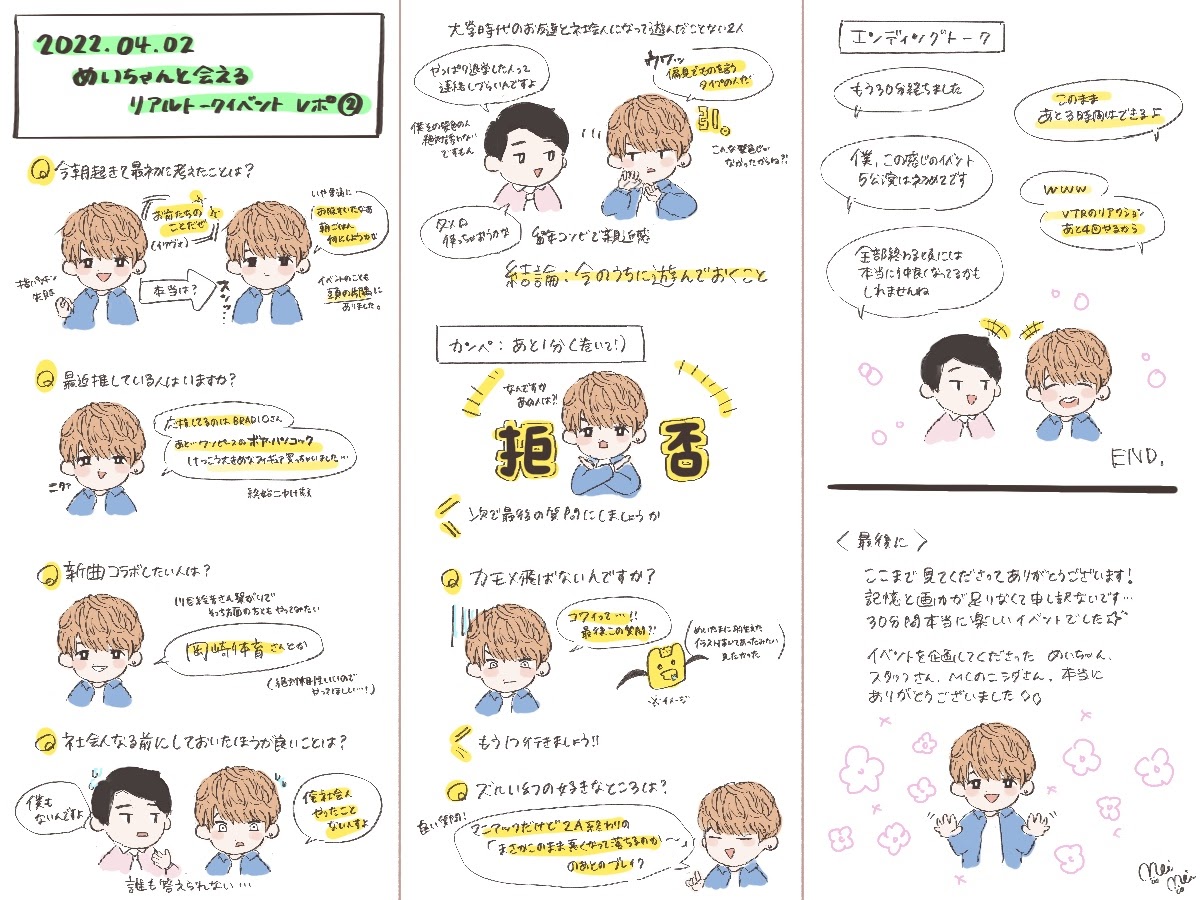 2022.04.02
めいちゃんと会える
リアルトークイベント レポ②
Q 今朝起きて最初に考えたことは?
お前たちの
ことだぜ
(イケヴォ)
指パッチン
失敗
本当は?
スンッ…
いや普通に
お腹すいたなあ
朝ごはん
何にしようかな
イベントのことも
頭の片隅に
ありました。
Q 最近推している人はいますか?
応援してるのはBRADIOさん
あとワンピースのボア・ハンコック
けっこう大きめなフィギュア買っちゃいました…
ニタァ
終始ニヤけ顔
Q 新曲コラボしたい人は?
そっち方面の方ともやってみたい
岡崎体育さんとか
(絶対相性いいので
やってほしい…!)
Q 社会人なる前にしておいたほうが良いことは?
僕も
ないんですよ
俺社会人
やったこと
ないんすよ
誰も答えられない…
大学時代のお友達と社会人になって遊んだことない2人
やっぱり退学した人って
連絡しづらいんですよ
ウワッ
偏見でものを言う
タイプの人だ!
引。
僕その髪色の人
絶対誘わない
ですもん
こんな髪色じゃ
なかったからね?!
ダメだ
使っちゃおうかな
留年コンビで親近感
結論:今のうちに遊んでおくこと
カンペ:あと1分(巻いて!)
なんですか
あの人は?!
拒否
次で最後の質問にしましょうか
Q カモメ飛ばないんですか?
コワイって…!!
最後この質問?!
めいたまに羽生えた
イラストはいてあったみたい
見たかった
※イメージ
もう1つ行きましょう!!
Q ズルい幻の好きなところは?
良い質問!
マニアックだけど2A終わりの
「まさかこのまま悪くなって落ちるのか~」
のあとのブレイク
エンディングトーク
もう30分経ちました
このまま
あと3時間はできるよ
僕、この感じのイベント
5公演は初めてです
www
VTRのリアクション
あと4回やるから
全部終わる頃には
本当に仲良くなってるかも
しれませんね
END.
<最後に>
ここまで見てくださってありがとうございます!
記憶と画力が足りなくて申し訳ないです…
30分間本当に楽しいイベントでした
イベントを企画してくださった めいちゃん、
スタッフさん、MCのニシダさん、本当に
ありがとうございました
mei
mei